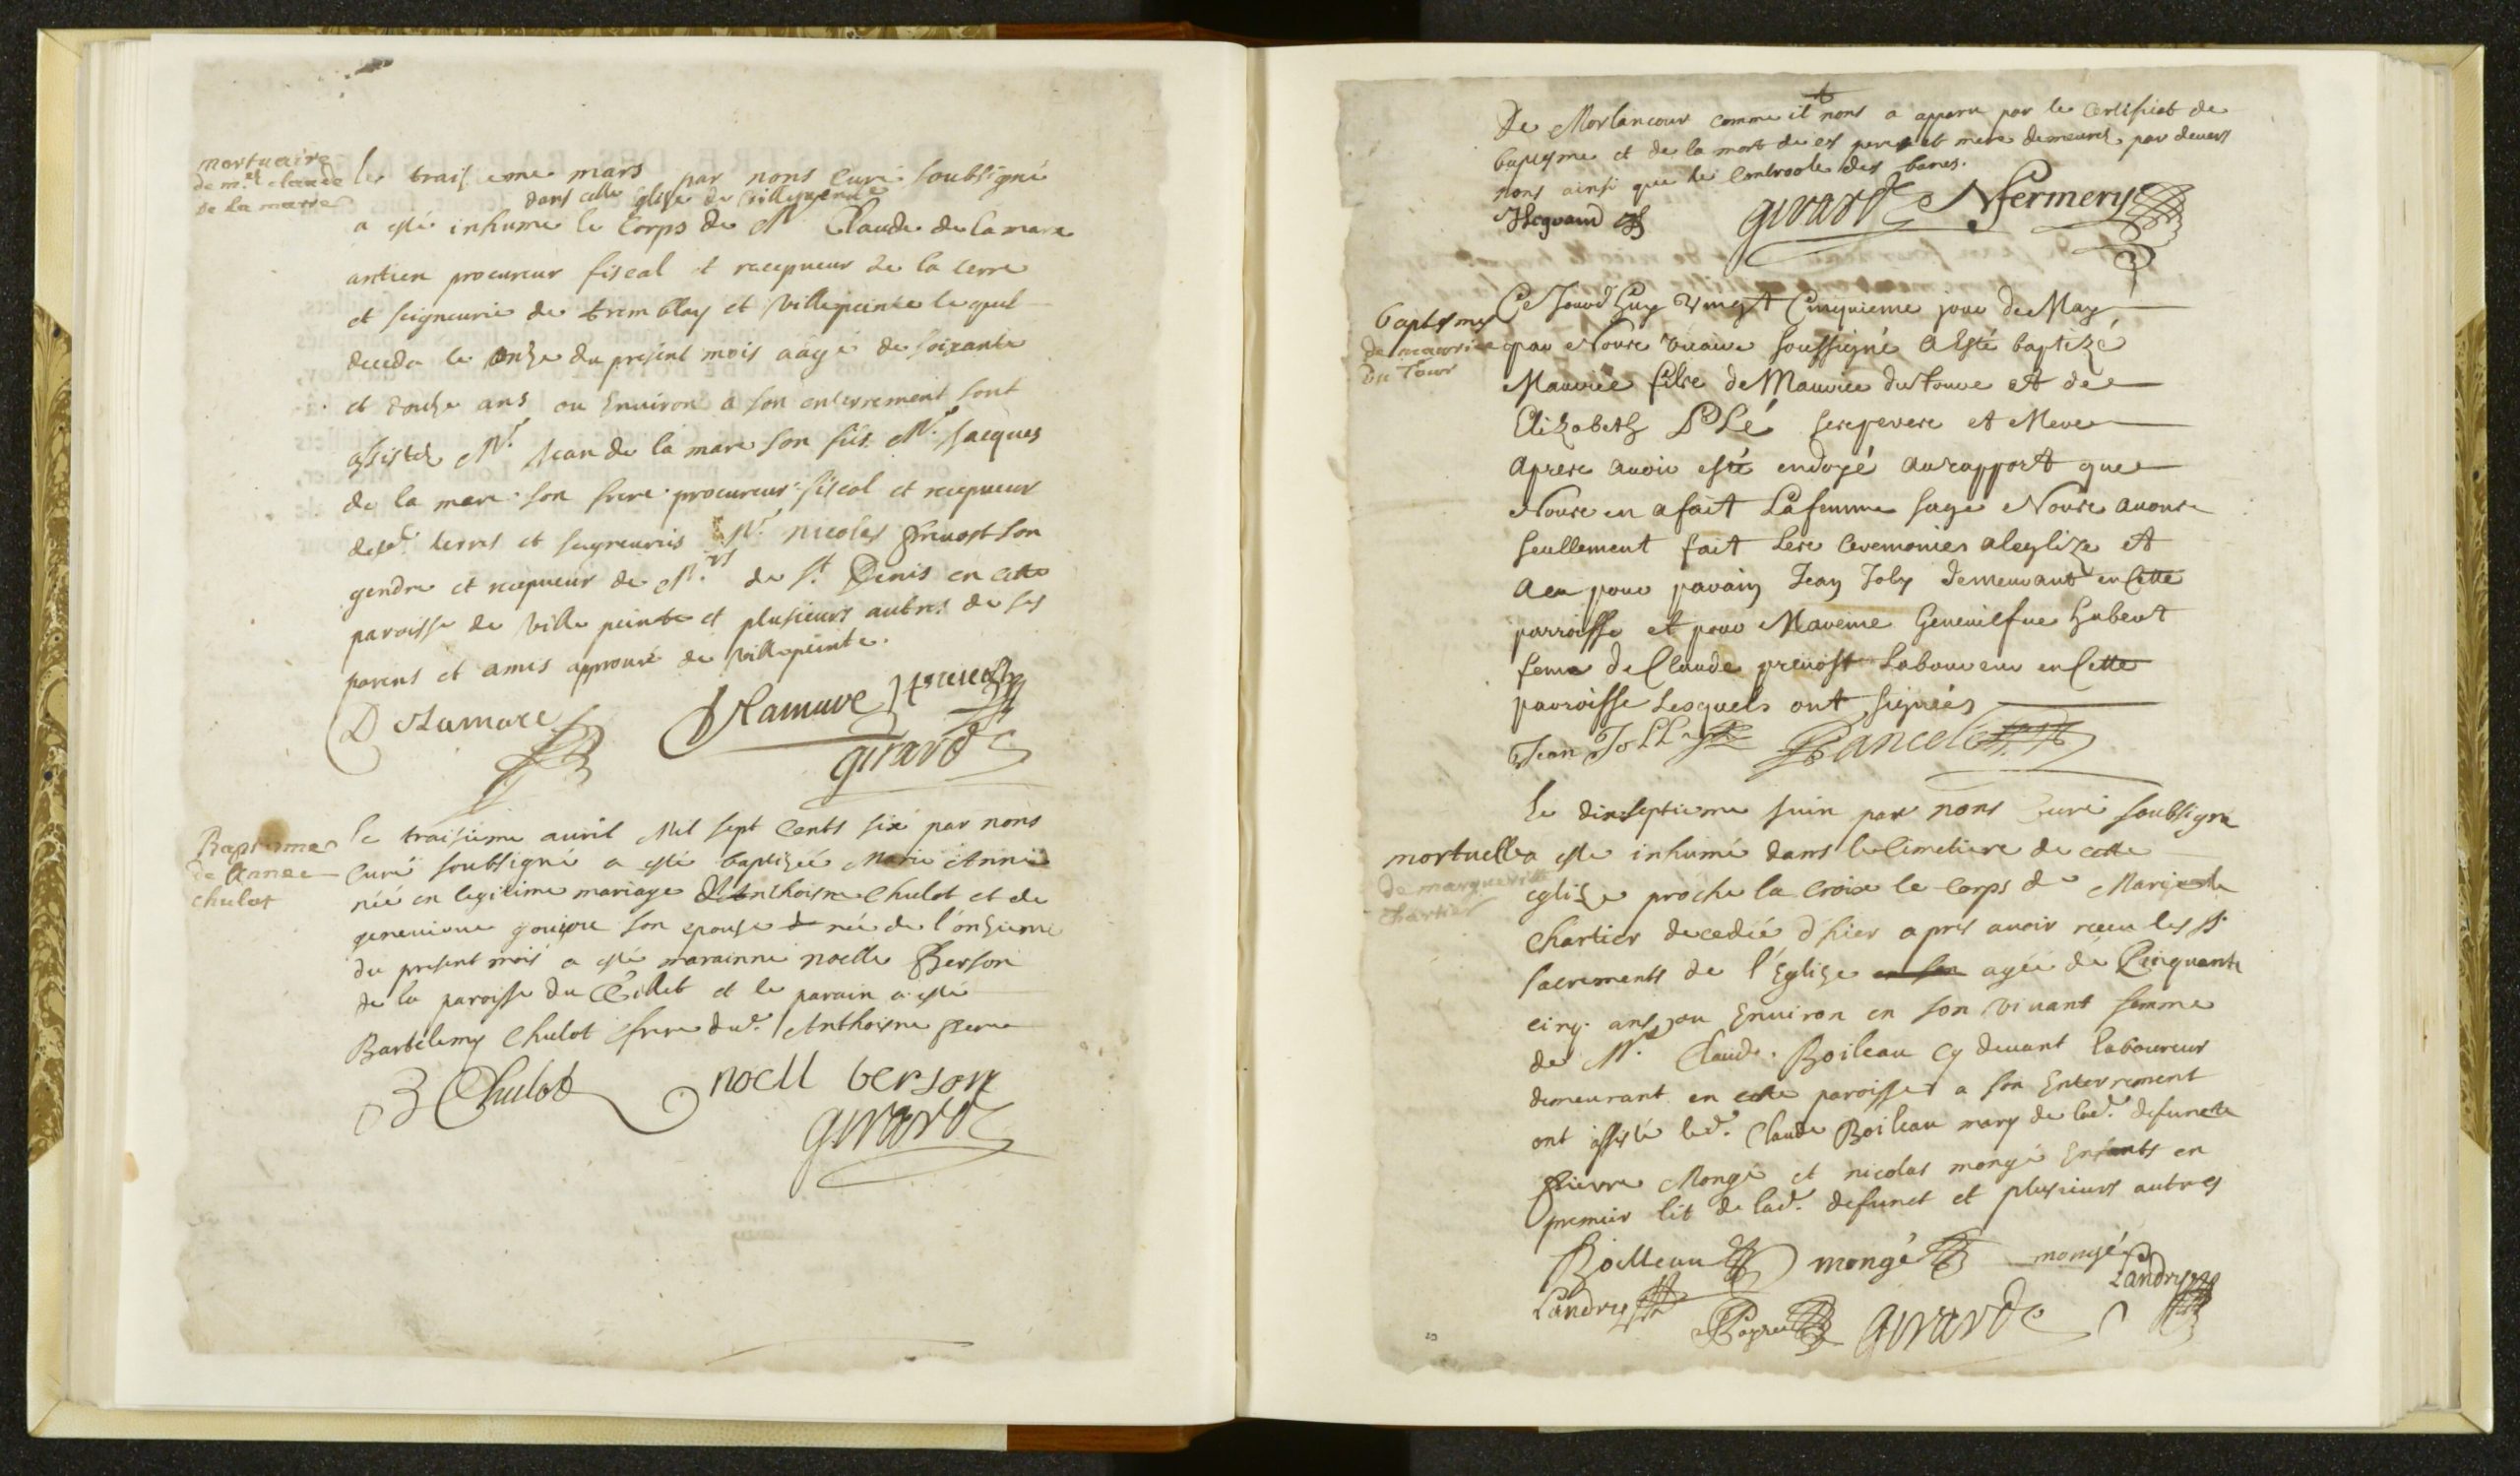 mortuaire
de m.re claude
de la marre
le traisieme mars par nous curé soubsigné
dans cette Eglise de villepeinte
a esté inhumé le corps de Mr Claude de la mare
antien procureur fiscal et recepueur de la terre
et seigneurie de tremblay et villepeinte lequel
deceda le onze du present mois aâgé de soixante
et douze ans ou Environ a son enterrement sont
assistez Mr. Jean de la mare son fils Mr. Jacques
de la mare son frere procureur fiscal et recepueur
desd. terres et seigneuries Mr. nicolas preuost son
gendre et recepueur de M.rs de St. Denis en cette
paroisse de ville peinte et plusieurs autres de ses
parens et amis approuvé de villepeinte.
Delamare Delamare preuost
girard
Baptesme
de Annee
chulot
le traisieme auril Mil sept Cents six par nous
Curé soubsigné a esté baptizeé Marie Anne
neé en legitime mariage d'Anthoisne Chulot et de
geneuieue son epouse neé de l'onzieme
du present mois a esté marainne noelle Berson
de la paroisse du Tillet et le parain a esté
Bartelemy Chulot frere dud. Anthoisne pere
B Chulot noell berson
girard
De Morlancour comme il nous a apparu par le certificat de
baptesme et de la mort de ses pere et mere demeurés par devers
nous ainsi que le controole des bancs.
JHequand girard Nfermery
baptesme
de maurice
du Tour
Ce Jourd'huy vingt Cinquieme jour de May
par Nous vicaire soussigné a Esté baptizé
Maurice fils de Maurice du tour et de
Elizabeth PLé ses pere et Mere
apres auoir esté endoyé au rapport que
Nous en a fait La femme sage Nous auons
seullement fait Les ceremonies a leglize et
a eu pour parain Jean Joly demeurant en Cette
parroisse et pour Mareine Geneuiefue hubert
feme de Claude preuost Laboureur en Cette
parroisse Lesquels ont signés
Jean JoLLy Rancelet
mortuelle
de margueritte
chartier
Le dixseptieme Juin par nous Curé soubsigné
a esté inhumé dans le Cimetiere de cette
eglize proche la Croix le corps de Marguerite
Chartier decedeé d'hier apres auoir receu les st
sacrements de l'Eglize en son ageé de Cinquante
cinq ans ou Enuiron en son viuant femme
de Mr. Claude Boileau cy deuant laboureur
demeurant en cette paroisse a son Enterrement
ont assisté led. Claude Boileau mary de lad. defuncte
pierre Mongé et nicolas mongé Enfants en
premier lit de lad. defunct et plusieurs autres
Boilleau mongé mongé
Landry Landry
girard